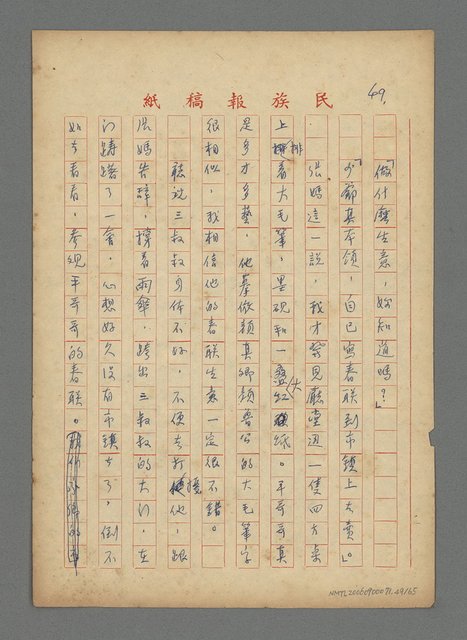 民族報稿紙
49.
「做什麼生意,妳知道嗎?」
「少爺真本領,自己寫春聯到市鎮上去賣」。
張媽這一說,我才發見廳堂邊一隻四方桌
上排着大毛筆,墨硯和一疊大紅紙。平哥哥真
是多才多藝,他摹倣顏真卿顏魯公的大毛筆字
很相似,我相信他的春聯生意一定很不錯。
聽說三叔叔身体不好,不便去打擾他,跟
張媽告辭,撐着雨傘,踏出三叔叔的大門,在
門口躊躇了一會,心想好久沒有市鎮去了,倒不
如去看看,參觀平哥哥的春聯。
NMTL20060900071.49/65